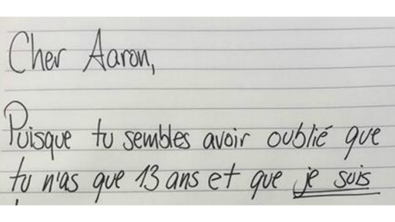 Cher Aaron,
Puisque tu sembles avoir oublié que
tu n'as que 13 ans et que je suis